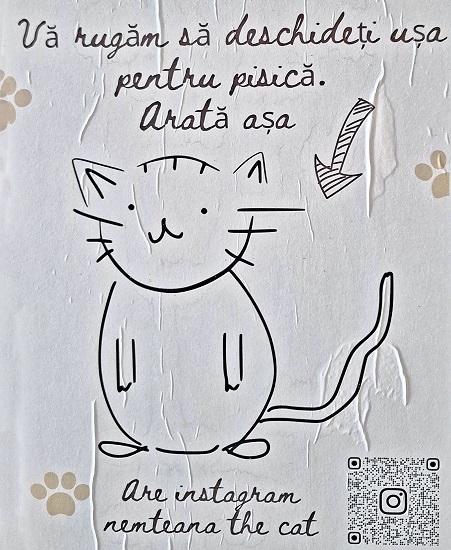 Vă rugăm să deschideți ușa
pentru pisică.
Arată așa
Are instagram
nemteana the cat